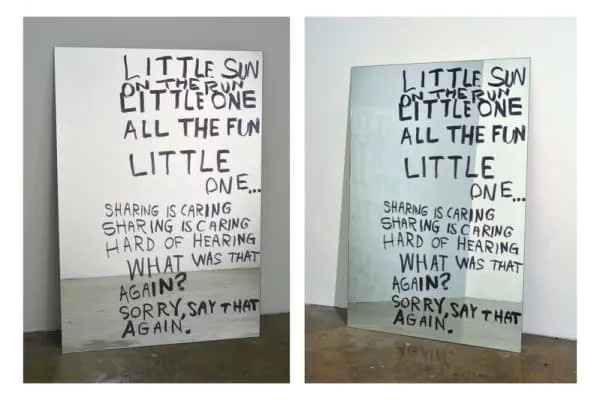 LITTLE SUN
ON THE RUN
LITTLE ONE
ALL THE FUN
LITTLE
ONE...
SHARING IS CARING
SHARING IS CARING
HARD OF HEARING
WHAT WAS THAT
AGAIN?
SORRY, SAY THAT
AGAIN.
LITTLE SUN
ON THE RUN
LITTLE ONE
ALL THE FUN
LITTLE
ONE...
SHARING IS CARING
SHARING IS CARING
HARD OF HEARING
WHAT WAS THAT
AGAIN?
SORRY, SAY THAT
AGAIN.